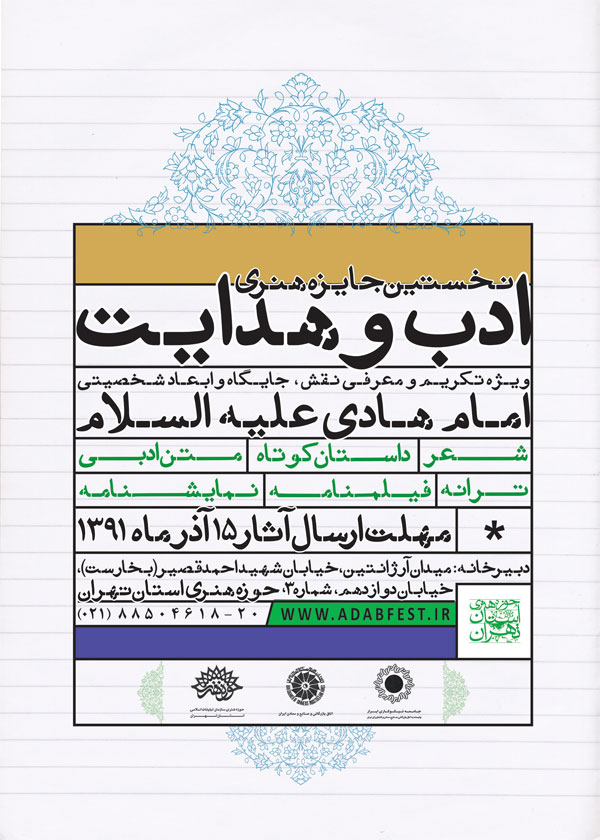 نخستین جایزه هنری
ادب و هدایت
ویژه تکریم و معرفی نقش، جایگاه و ابعاد شخصیتی
امام هادی علیه السلام
شعر | داستان کوتاه | متن ادبی
ترانه | فیلمنامه | نمایشنامه
* مهلت ارسال آثار ۱۵ آذر ماه ۱۳۹۱
دبیرخانه: میدان آرژانتین، خیابان شهید احمد قصیر (بخارست)،
خیابان دوازدهم، شماره ۳، حوزه هنری استان تهران
WWW.ADABFEST.IR (۰۲۱) ۸۸۵۰۴۶۱۸-۲۰
حوزه هنری
استان
تهران
حوزه هنری سازمان تبلیغات اسلامی
استان تهران
اتاق بازرگانی و صنایع و معادن ایران
جامعه نیکوکاری ابرار